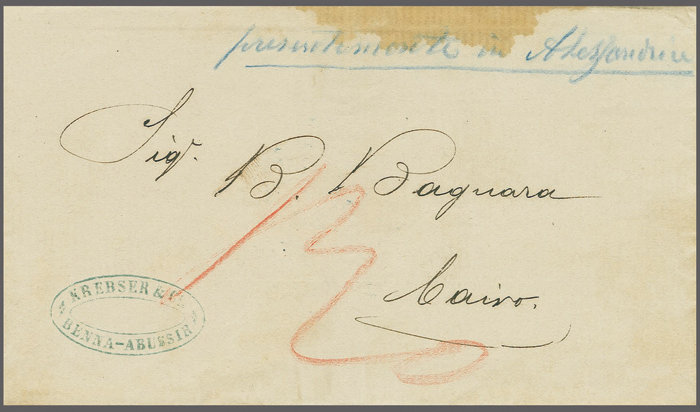 presentemente in Alessandria
Sigr. B. Bagnara
Cairo.
KREBSER & Co.
BENHA-ABUSSIR